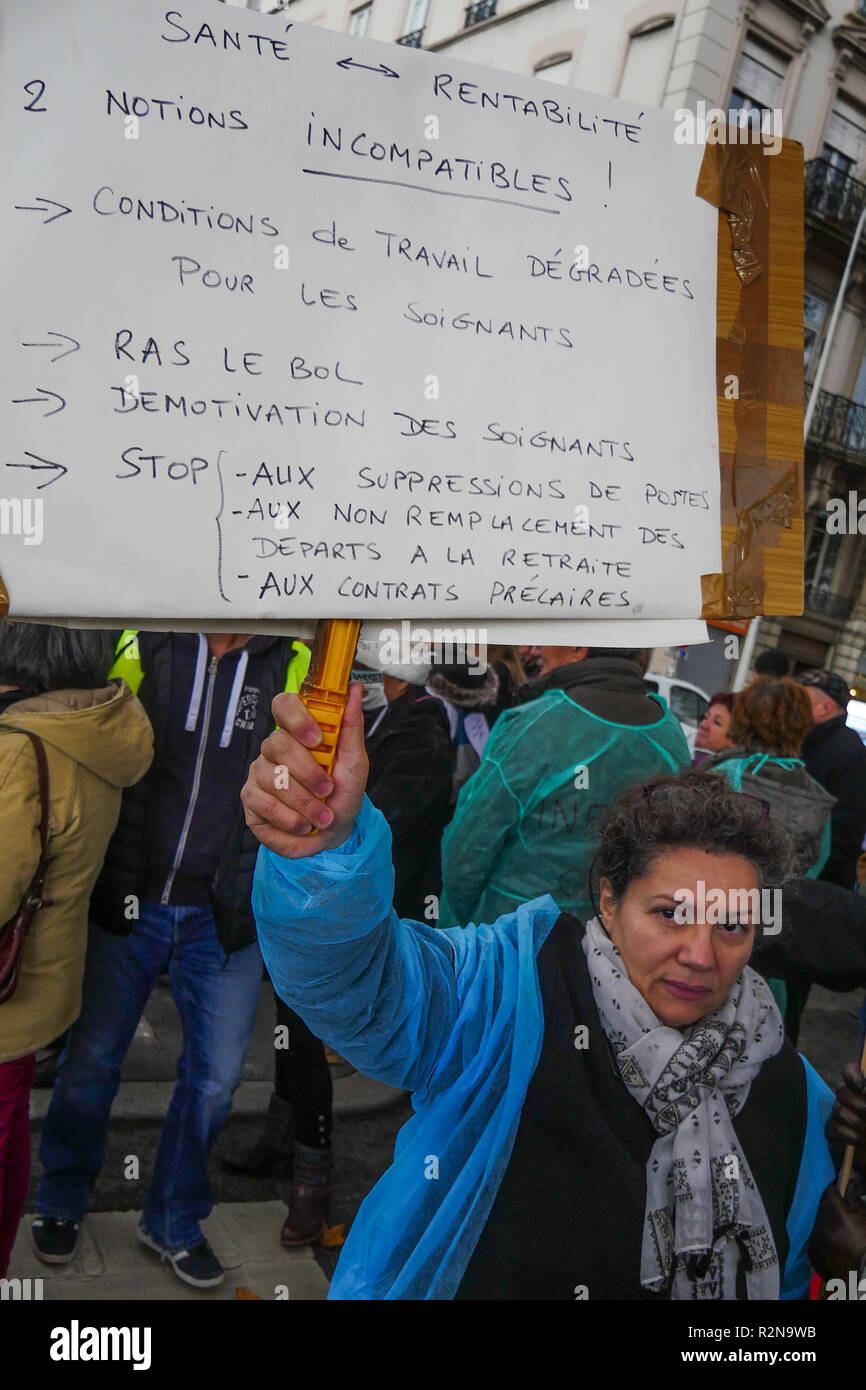 SANTÉ ↔ RENTABILITÉ
2 NOTIONS INCOMPATIBLES !
→ CONDITIONS de TRAVAIL DÉGRADÉES
POUR LES SOIGNANTS
→ RAS LE BOL
→ DEMOTIVATION DES SOIGNANTS
→ STOP - AUX SUPPRESSIONS DE POSTES
- AUX NON REMPLACEMENT DES
DEPARTS A LA RETRAITE
- AUX CONTRATS PRÉCAIRES
alamy
Image ID: R2N9WB
www.alamy.com